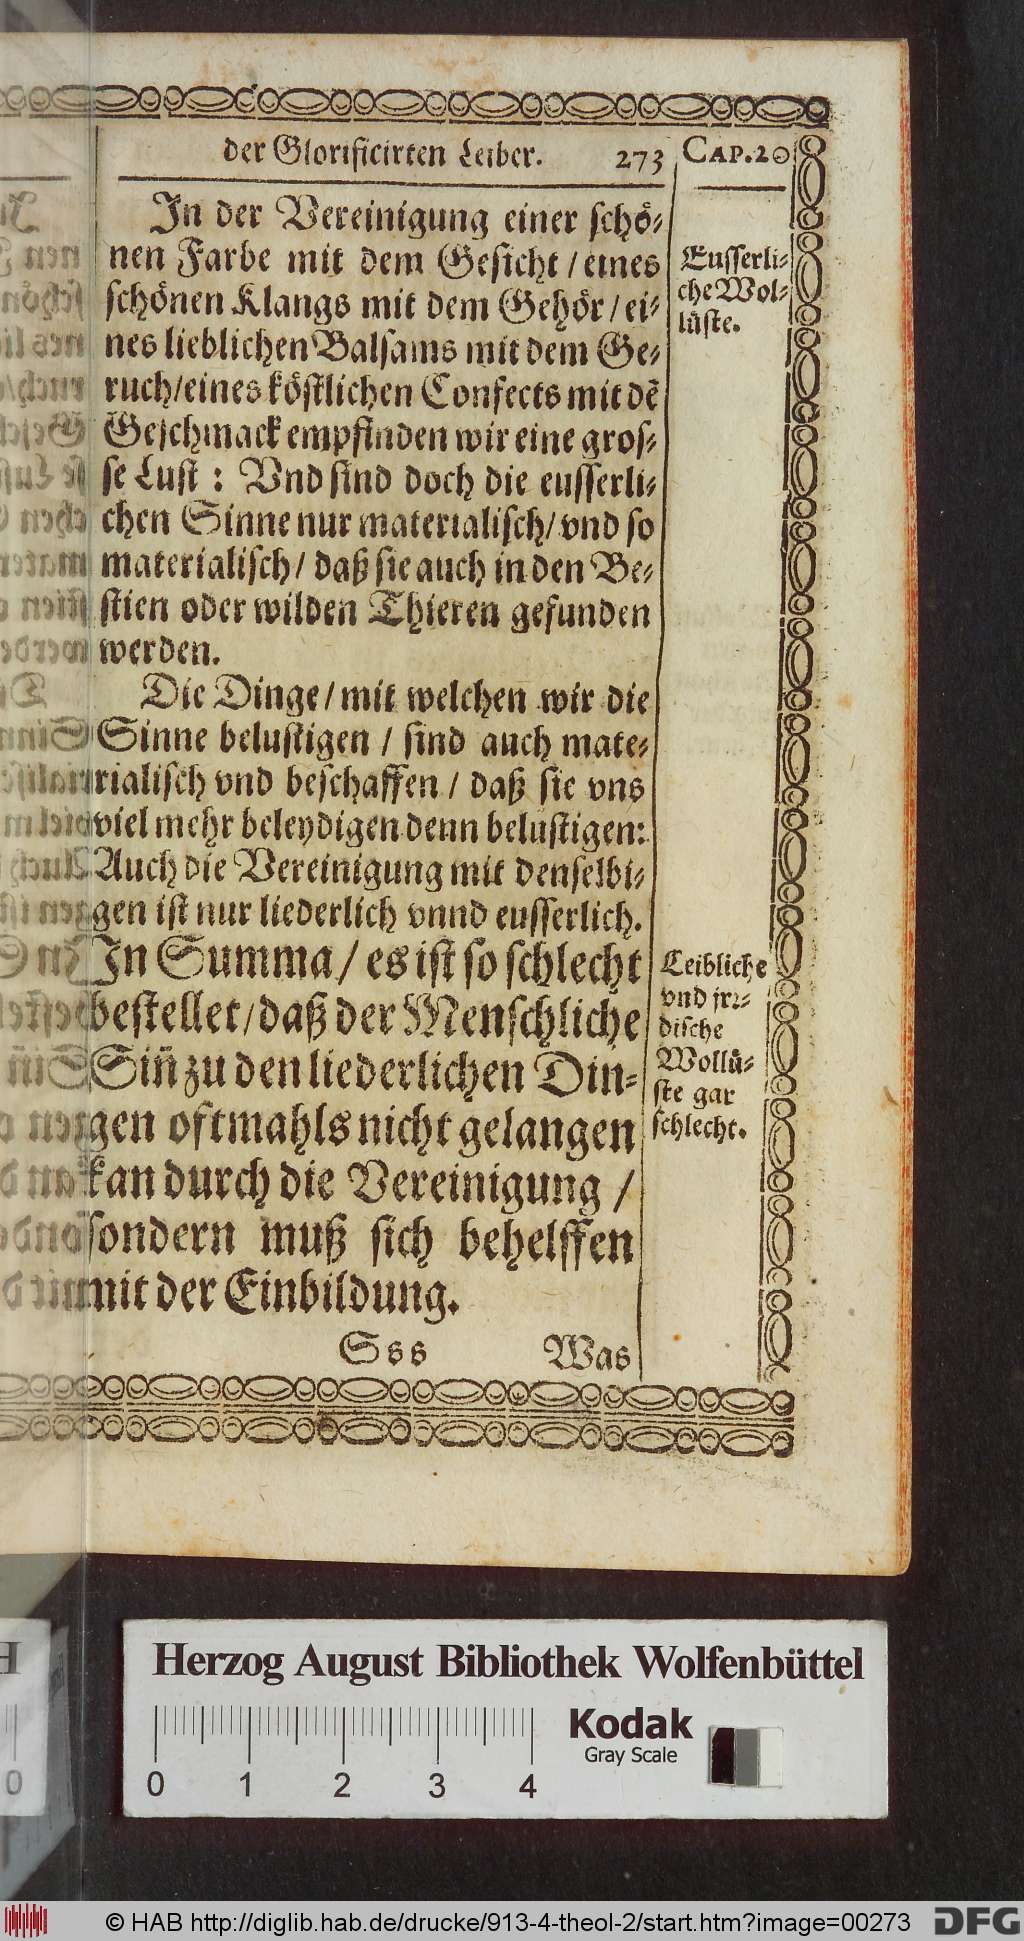 der Glorificirten Leiber. 273 CAP.20
In der Vereinigung einer schö-
nen Farbe mit dem Gesicht / eines
schönen Klangs mit dem Gehör / ei-
nes lieblichen Balsams mit dem Ge-
ruch/eines köstlichen Confects mit dẽ
Geschmack empfinden wir eine gros-
se Lust : Vnd sind doch die eusserli-
chen Sinne nur materialisch/ vnd so
materialisch / daß sie auch in den Be-
stien oder wilden Thieren gefunden
werden.
Eusserli-
che Wol-
lüste.
Die Dinge / mit welchen wir die
Sinne belustigen / sind auch mate-
rialisch vnd beschaffen / daß sie vns
viel mehr beleydigen denn belustigen:
Auch die Vereinigung mit denselbi-
gen ist nur liederlich vnnd eusserlich.
In Summa / es ist so schlecht
bestellet/daß der Menschliche
Siñ zu den liederlichen Din-
gen oftmahls nicht gelangen
kan durch die Vereinigung /
sondern muß sich behelffen
mit der Einbildung.
Leibliche
vnd jrr-
dische
Wollü-
ste gar
schlecht.
Sss Was
Herzog August Bibliothek Wolfenbüttel
Kodak
Gray Scale
0 1 2 3 4
© HAB http://diglib.hab.de/drucke/913-4-theol-2/start.htm?image=00273
DFG